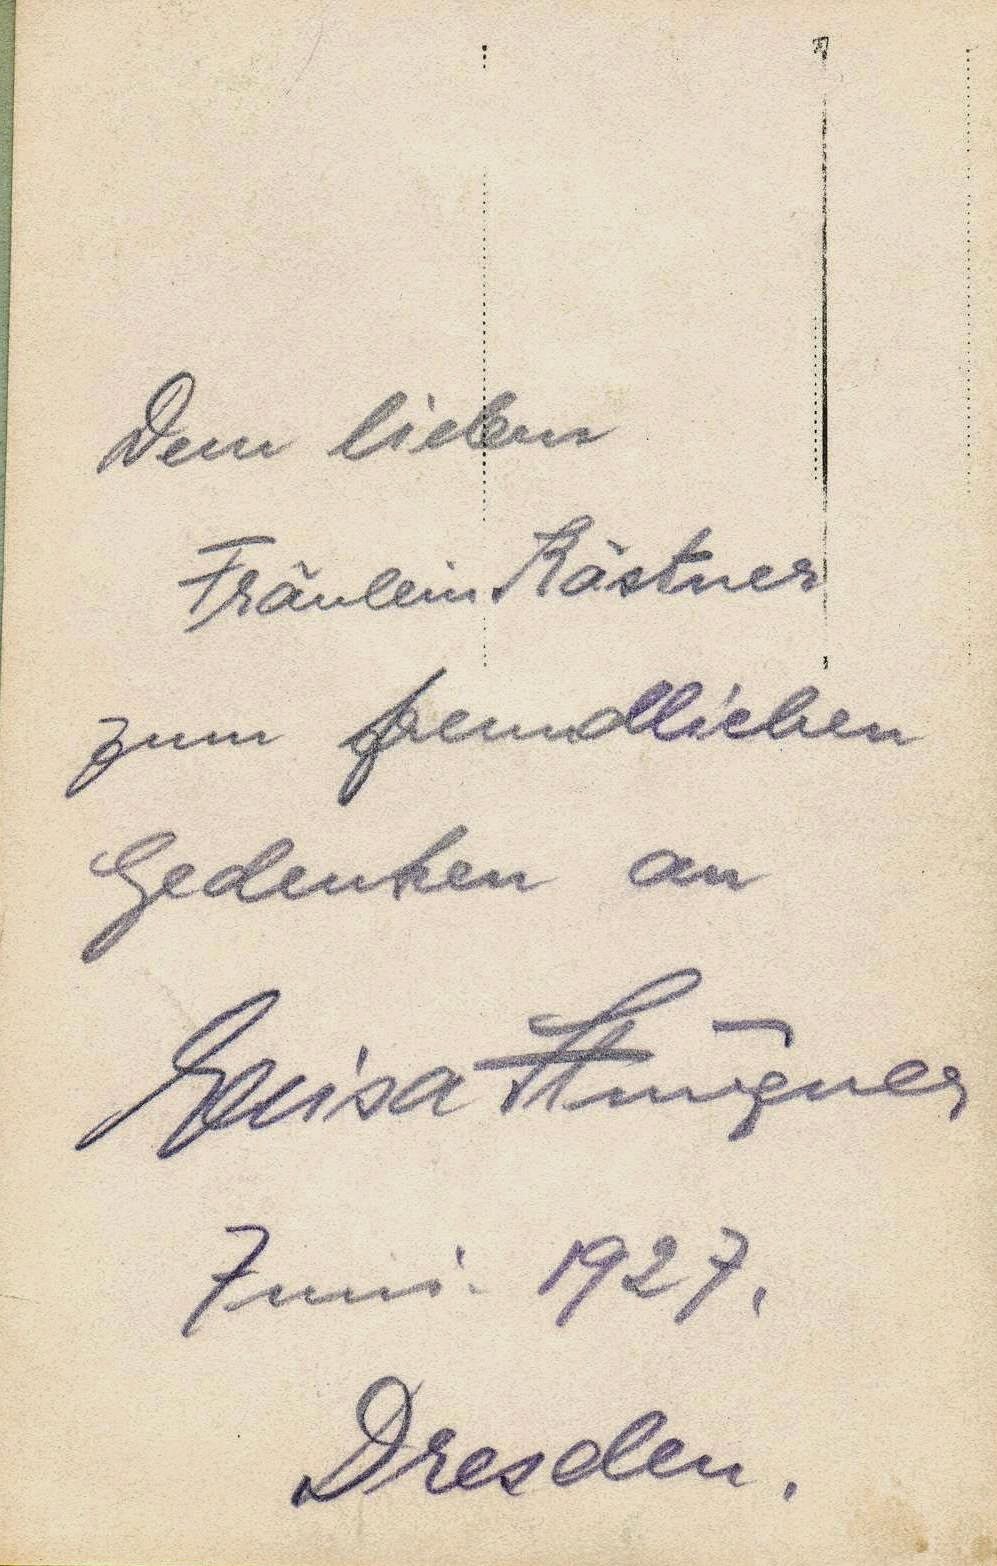 Dem lieben
Fräulein Kästner
zum freundlichen
Gedenken an
Elisa Stünzner
Juni 1927.
Dresden.